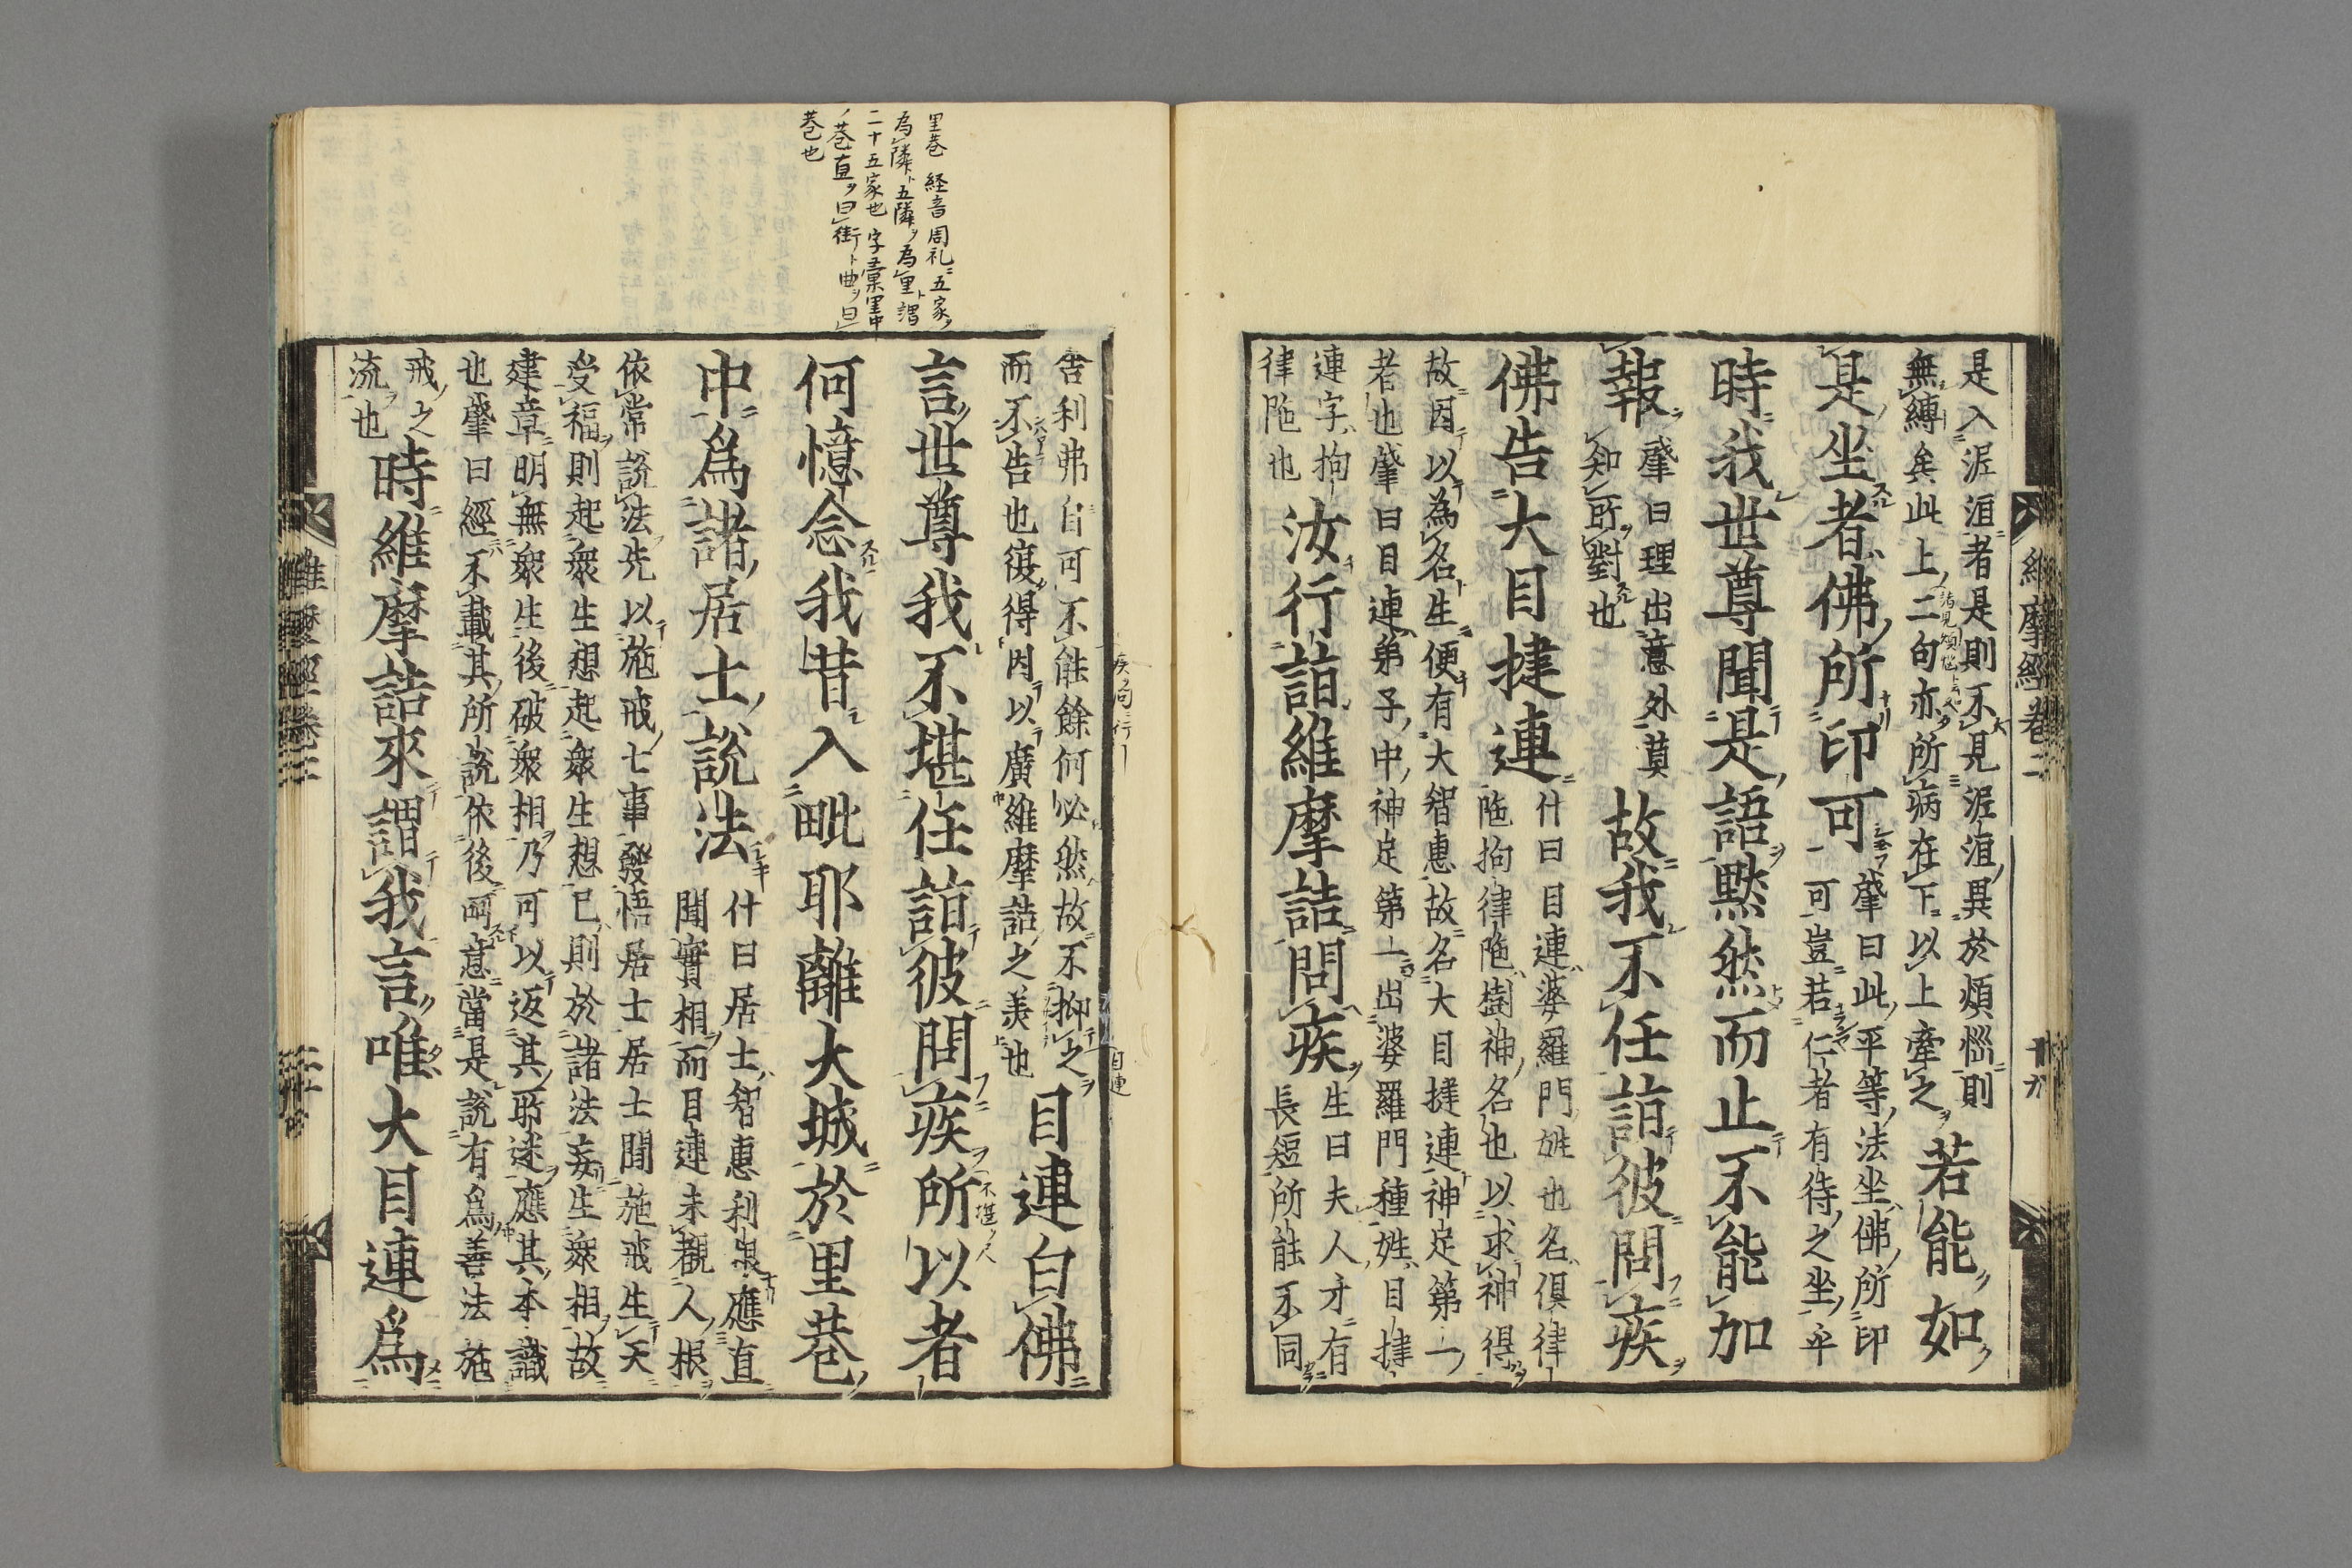 是入涅洹者是則不見涅洹異於煩惱則
無縛矣此上二句亦所病在下以上牽之
若能如
是坐者佛所印可
肇曰此平等法坐佛所印
可豈若仁者有待之坐乎
時我世尊聞是語黙然而止不能加
報
肇曰理出意外莫
知所對也
故我不任詣彼問疾
佛告大目揵連
什曰目連婆羅門姓也名俱律
陁拘律陁樹神名也以求神得
故因以為名生便有大智惠故名大目揵連神足第一
者也肇曰目連弟子中神足第一出婆羅門種姓目揵
連字拘
律陁也
汝行詣維摩詰問疾
生曰夫人才有
長短所能不同
維摩經卷二
十九
舍利弗自可不能餘何必然故不抑之
而不告也復得因以廣維摩詰之美也
目連白佛
言世尊我不堪任詣彼問疾所以者
何憶念我昔入毗耶離大城於里巷
中爲諸居士說法
什曰居士智惠利根應直
聞實相而目連未觀人根
依常說法先以施戒七事發悟居士居士聞施戒生天
受福則起衆生想起衆生想已則於諸法妄生衆相故
建章明無衆生後破衆相乃可以返其所迷應其本識
也肇曰經不載其所說依後呵意當是說有爲善法施
戒之
流也
時維摩詰來謂我言唯大目連爲
維摩經卷二
里巷 経音周礼五家
為隣五隣為里謂
二十五家也 字彙里中
巷直曰街曲曰
巷也
目連